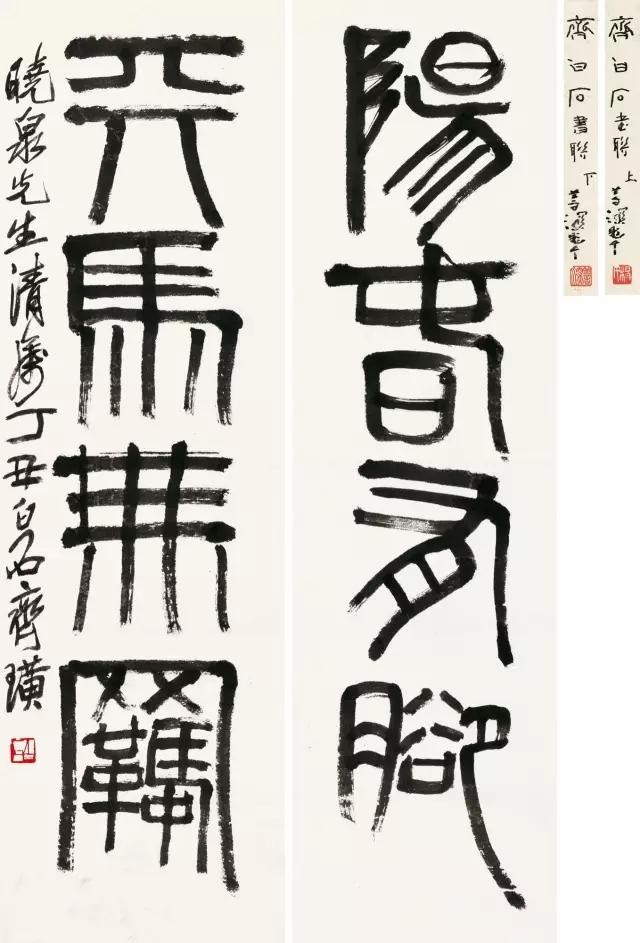 陽春有腳
天馬無羈
曉泉先生清屬丁丑白石齊璜
齊白石書聯 上
齊白石書聯 下